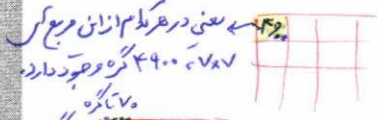 یعنی در هر کدام از این مربع های
۷۰x۷۰، ۴۹۰۰ گره وجود دارد.
۷۰ تا گره
۴۹۰۰